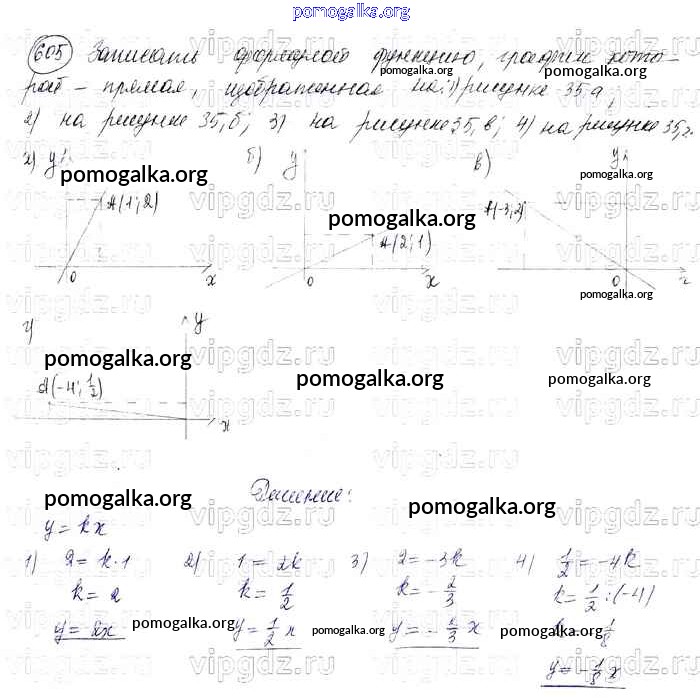 pomogalka.org
605 Записать формулой функцию, график кото-
рой – прямая, изображенная на: 1) рисунке 35, а;
2) на рисунке 35, б; 3) на рисунке 35, в; 4) на рисунке 35, г.
а) y б) y в) y
pomogalka.org
A(1; 2) A(2; 1) A(-3; 2)
pomogalka.org
pomogalka.org
0 x 0 x 0 x
pomogalka.org
г) y
pomogalka.org
A(-4; 1/2)
pomogalka.org
pomogalka.org
x
Решение:
pomogalka.org
pomogalka.org
y = kx
1) 2 = k·1 2) 1 = 2k 3) 2 = -3k 4) 1/2 = -4k
k = 2 k = 1/2 k = -2/3 k = 1/2 : (-4)
pomogalka.org
pomogalka.org
pomogalka.org
y = 2x y = 1/2 x y = -1/3 x -1/8
y = -1/8 x
vipgdz.ru